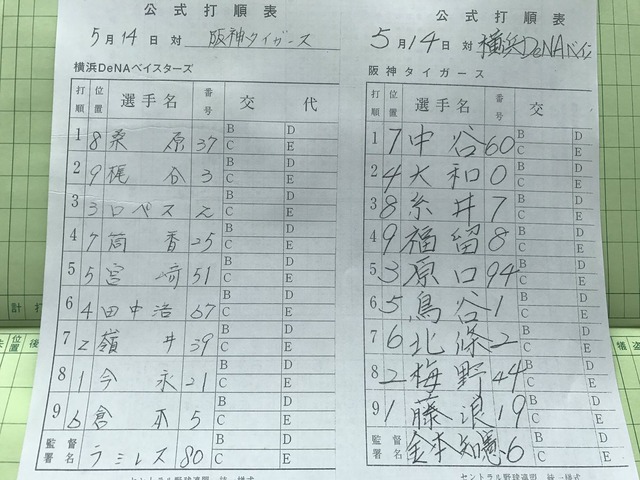 公式打順表
5月14日 対 阪神タイガース
横浜DeNAベイスターズ
打順 位置 選手名 番号 交代
1 8 桑原 37 B D C E
2 9 梶谷 3 B D C E
3 3 ロペス 2 B D C E
4 7 筒香 25 B D C E
5 5 宮﨑 51 B D C E
6 4 田中浩 67 B D C E
7 2 嶺井 39 B D C E
8 1 今永 21 B D C E
9 6 倉本 5 B D C E
監督署名 ラミレス 80 B D C E
セントラル野球連盟 統一様式
公式打順表
5月14日 対 横浜DeNAベイ
阪神タイガース
打順 位置 選手名 番号 交
1 7 中谷 60 B D C E
2 4 大和 0 B D C E
3 8 糸井 7 B D C E
4 9 福留 8 B D C E
5 3 原口 94 B D C E
6 5 鳥谷 1 B D C E
7 6 北條 2 B D C E
8 2 梅野 44 B D C E
9 1 藤浪 19 B D C E
監督署名 金本知憲 6 B D C E
セントラル野球連盟 統一様式
計 打
位置
後
犠 盗